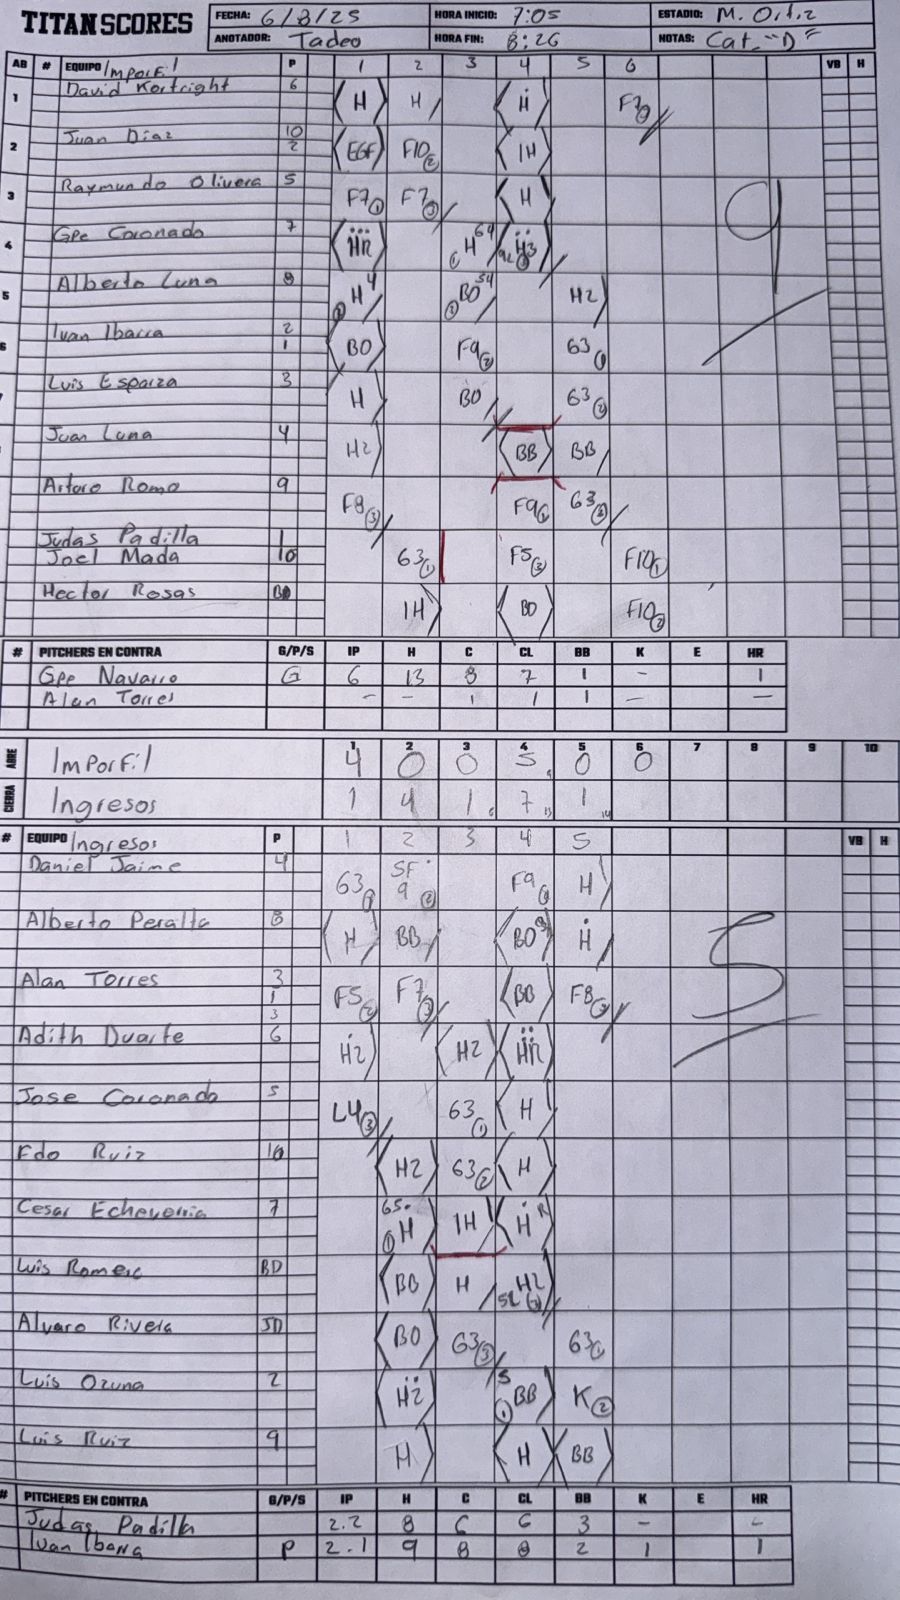 TITAN SCORES
FECHA: 6/8/25 HORA INICIO: 7:05 ESTADIO: M. Ortiz
ANOTADOR: Tadeo HORA FIN: 8:26 NOTAS: Cat. "D"
AB # EQUIPO Imporfil P 1 2 3 4 5 6 VB H
1 David Kortright 6 H H H F7
2 Juan Diaz 10 2 EGF F10 2 1H
3 Raymundo Olivera 5 F7 1 F7 3 H
4 Gpe Coronado 7 HR 1 H 64 H3
5 Alberto Luna 8 H 4 1 BO 54 H2
6 Ivan Ibarra 2 1 BO F9 2 63 1
Luis Esparza 3 H BO 63 2
Juan Luna 4 H2 BB BB
Arturo Romo 9 F8 3 F9 1 63 3
Judas Padilla 1
Joel Mada 10 63 1 F5 2 F10 1
Hector Rosas BD 1H BO F10 2
9
# PITCHERS EN CONTRA G/P/S IP H C CL BB K E HR
Gpe Navarro G 6 13 8 7 1 - 1
Alan Torres - - 1 1 1 - -
1 2 3 4 5 6 7 8 9 10
ABRE Imporfil 4 0 0 5 0 0
CIERRA Ingresos 1 4 1 7 1
# EQUIPO Ingresos P 1 2 3 4 5 VB H
Daniel Jaime 4 63 1 SF 9 2 F9 H
Alberto Peralta 8 H BB BO H
Alan Torres 3 1 3 F5 2 F7 3 BB F8 3
Adith Duarte 6 H2 H2 HR
Jose Coronado 5 L4 3 63 1 H
Fdo Ruiz 10 H2 63 2 H
Cesar Echeverria 7 65 1 H 1H H R
Luis Romero BD BB H H2
Alvaro Rivera JD BO 63 3 63 1
Luis Ozuna 2 H2 5 1 BB K 2
Luis Ruiz 9 H H BB
5
# PITCHERS EN CONTRA G/P/S IP H C CL BB K E HR
Judas Padilla 2.2 8 6 6 3 - -
Ivan Ibarra P 2.1 9 8 8 2 1 1